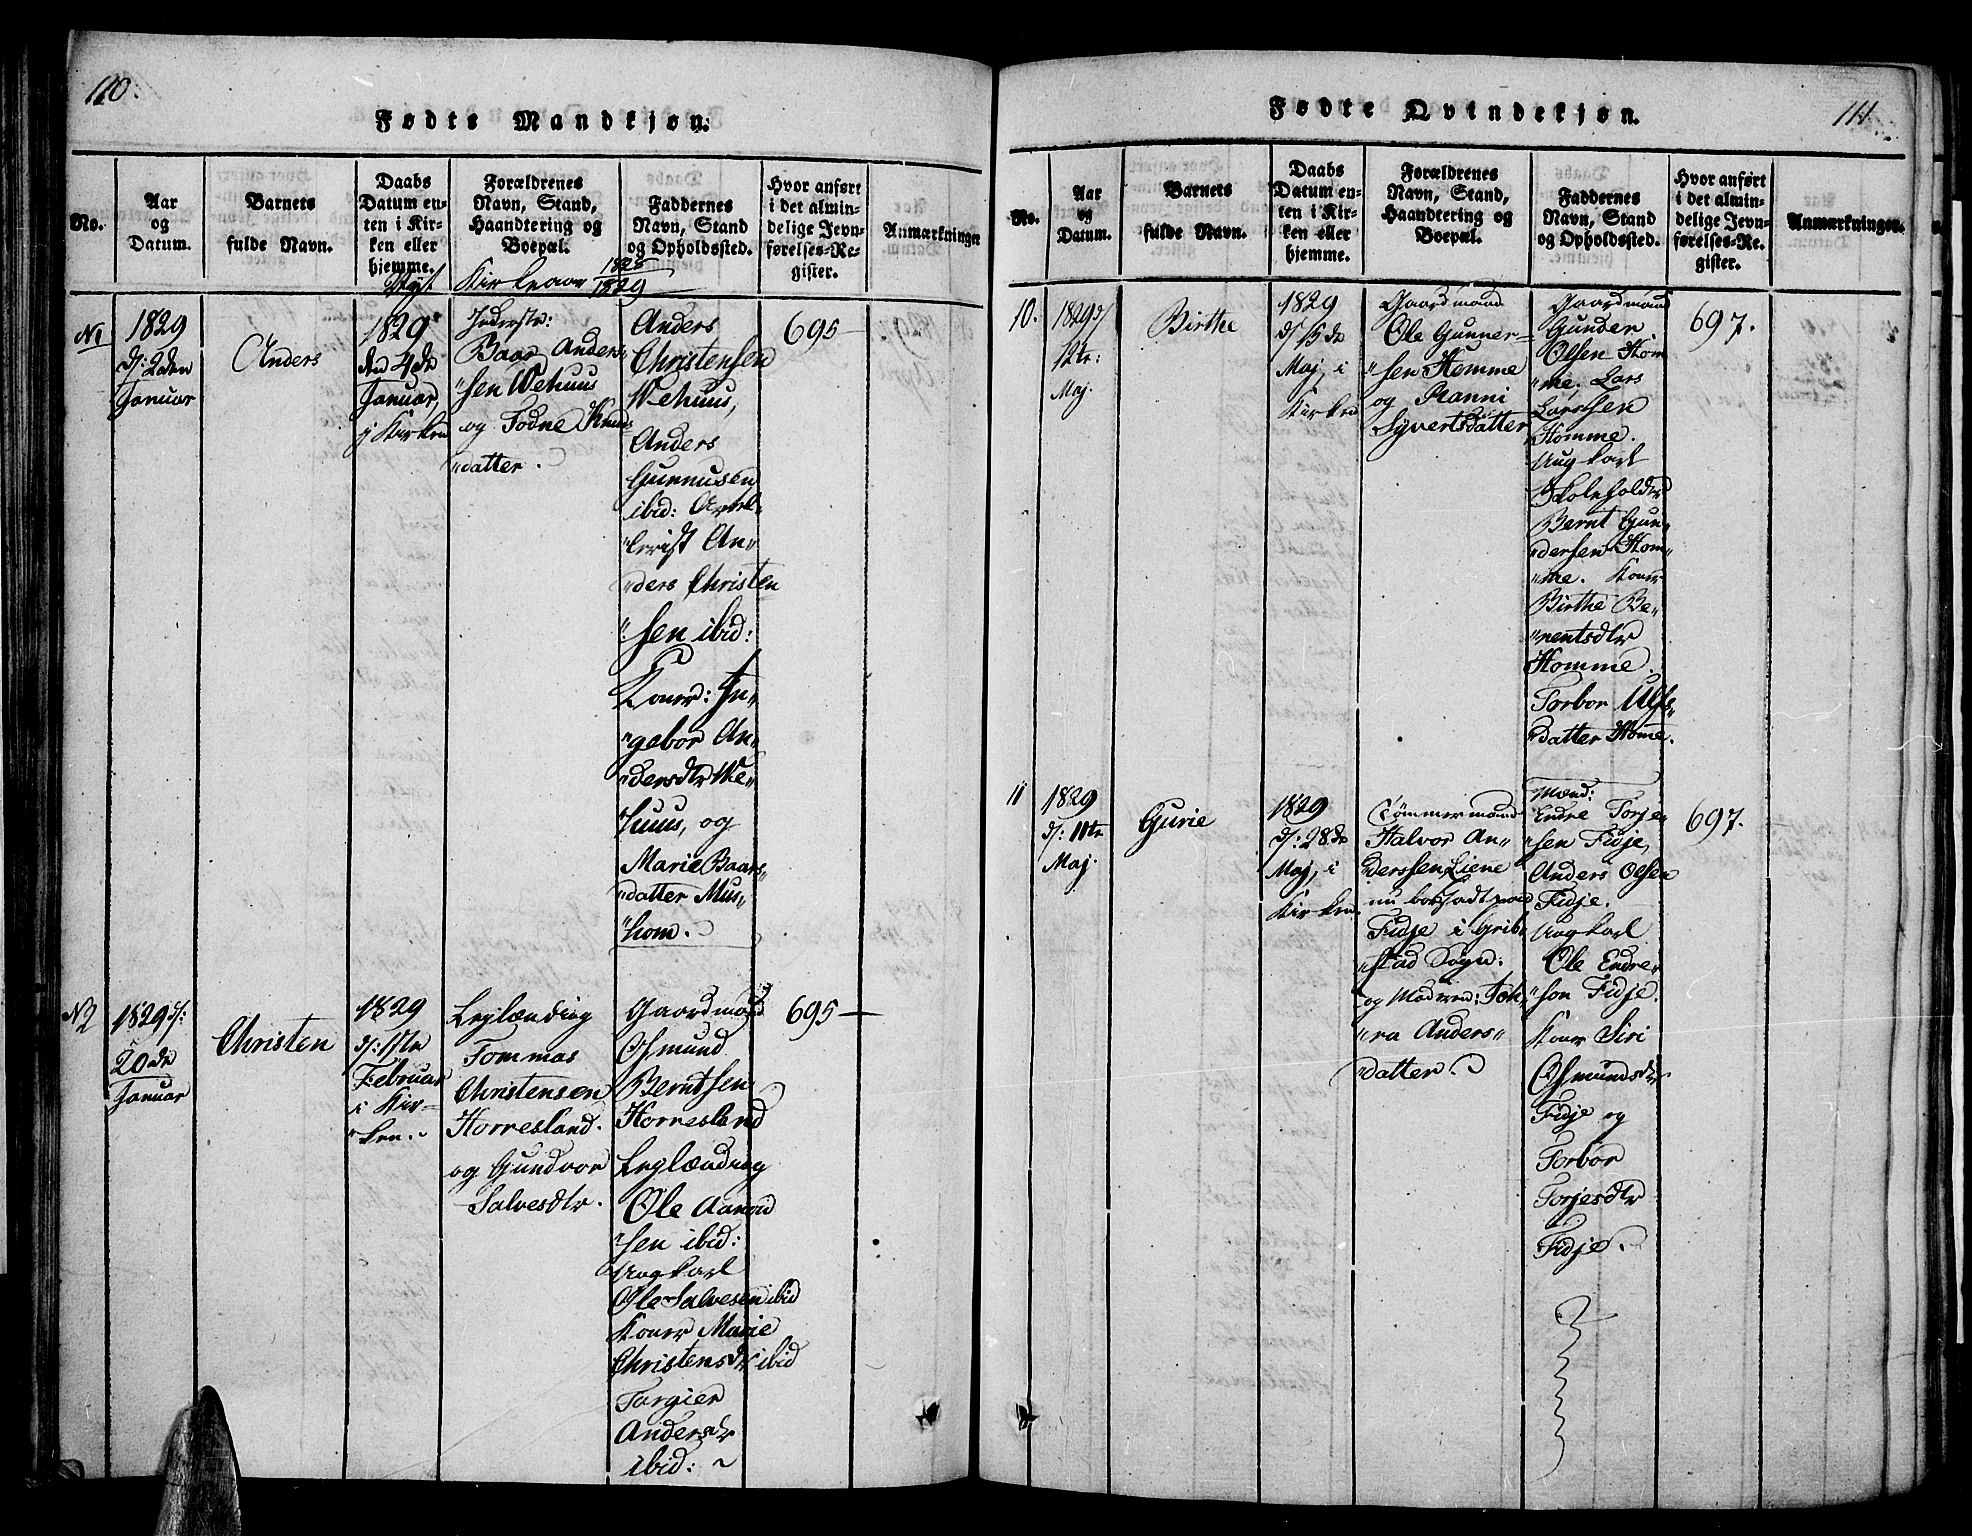 110.
Fødte Mandkjøn.
No.
Aar
og
Datum.
Barnets
fulde Navn.
Daabs
Datum en-
ten i Kir-
ken eller
hjemme.
Forældrenes
Navn, Stand,
Haandtering og
Boepæl.
Faddernes
Navn, Stand
og Opholdssted.
Hvor anført
i det almin-
delige Jevn-
førelses-Re-
gister.
Anmærkninger
Kirkeaar 1828
1829
N1
1829
d: 2den
Januar
Anders
1829
den 4de
Januar,
i Kirken
Inderstr:
Baar Anders-
"sen Wehuus
og Todne Knuds
"datter.
Anders
Christensen
Wehuus,
Anders
Gunnusen
ibid:
An-
"ders Christen
"sen ibid:
Koner: In-
"gebor An-
"dersdtr We-
"huus, og
Marie Baars-
"datter Mus-
"hom.
695-
N2
1829 d:
20de
Januar
Christen
1829
d: 1ste
Februar
i Kir-
"ken.
Leylænding
Tommas
Christensen
Horresland.
og Gundvor
Salvesdtr.
Gaardmand
Osmund
Berntsen
Horresland
Leylænding
Ole Aanon
"sen ibid:
Ungkarl
Ole Salvesen ibid
Koner Marie
Christensdtr ibid
Torgier
Andersdr
ibid:
695-
111.
Fødte Qvindekjøn.
No.
Aar
og
Datum.
Barnets
fulde Navn.
Daabs
Datum en-
ten i Kir-
ken eller
hjemme.
Forældrenes
Navn, Stand,
Haandtering og
Boepæl.
Faddernes
Navn, Stand
og Opholdssted.
Hvor anført
i det almin-
delige Jevn-
førelses-Re-
gister.
Anmærkninger.
10.
1829 d/
12te:
Maj.
Birthe
1829
d/ 15de
Maj, i
Kirken
Gaardmand
Ole Gunner-
"sen Homme
og Ranni
Syvertsdatter
Gaardmand
Gunder
Olsen Hom
"me. Lars
Larssen
Homme.
Ungkarl
Skoleholder
Bernt Gun-
"dersen Hom-
"me. Koner
Birthe Be-
"rentsdtr
Homme.
Torbor Ulfs-
"datter Home.
697.
11
1829
d: 11te
Maj.
Gurie
1829
d: 28de
Maj, i
Kirken.
Tømmermand
Halvor An-
"derssen Liene
nu bosadt paa
Fidje i Grib-
"stad Sogn:
og Moderen: Toh-
"ra Anders-
"datter.
Mænd:
Endre Torje-
"sen Fidje,
Anders Olsen
Fidje.
Ungkarl
Ole Endre-
"son Fidje.
Koner Siri
Osmundsdtr
Fidje og
Torbor
Torjesdtr
Fidje.
697.